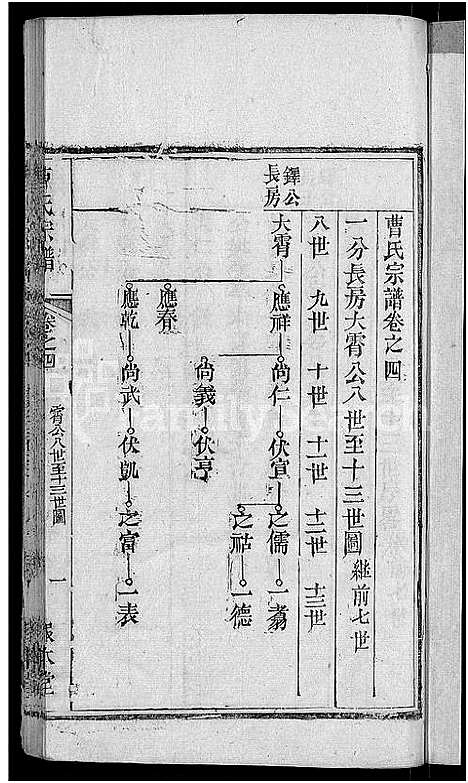 曹氏宗譜卷之四
一分長房大霄公八世至十三世圖 継前七世
八世 九世 十世 十一世 十二世 十三世
鐸公長房
大霄 應祥 尙仁 伏宜 之儒 一翥
之祜 一德
尙義 伏亨
應春
應乾 尙武 伏凱 之富 一表
氏宗譜 卷之四 霄公八世至十三世圖 一 本堂